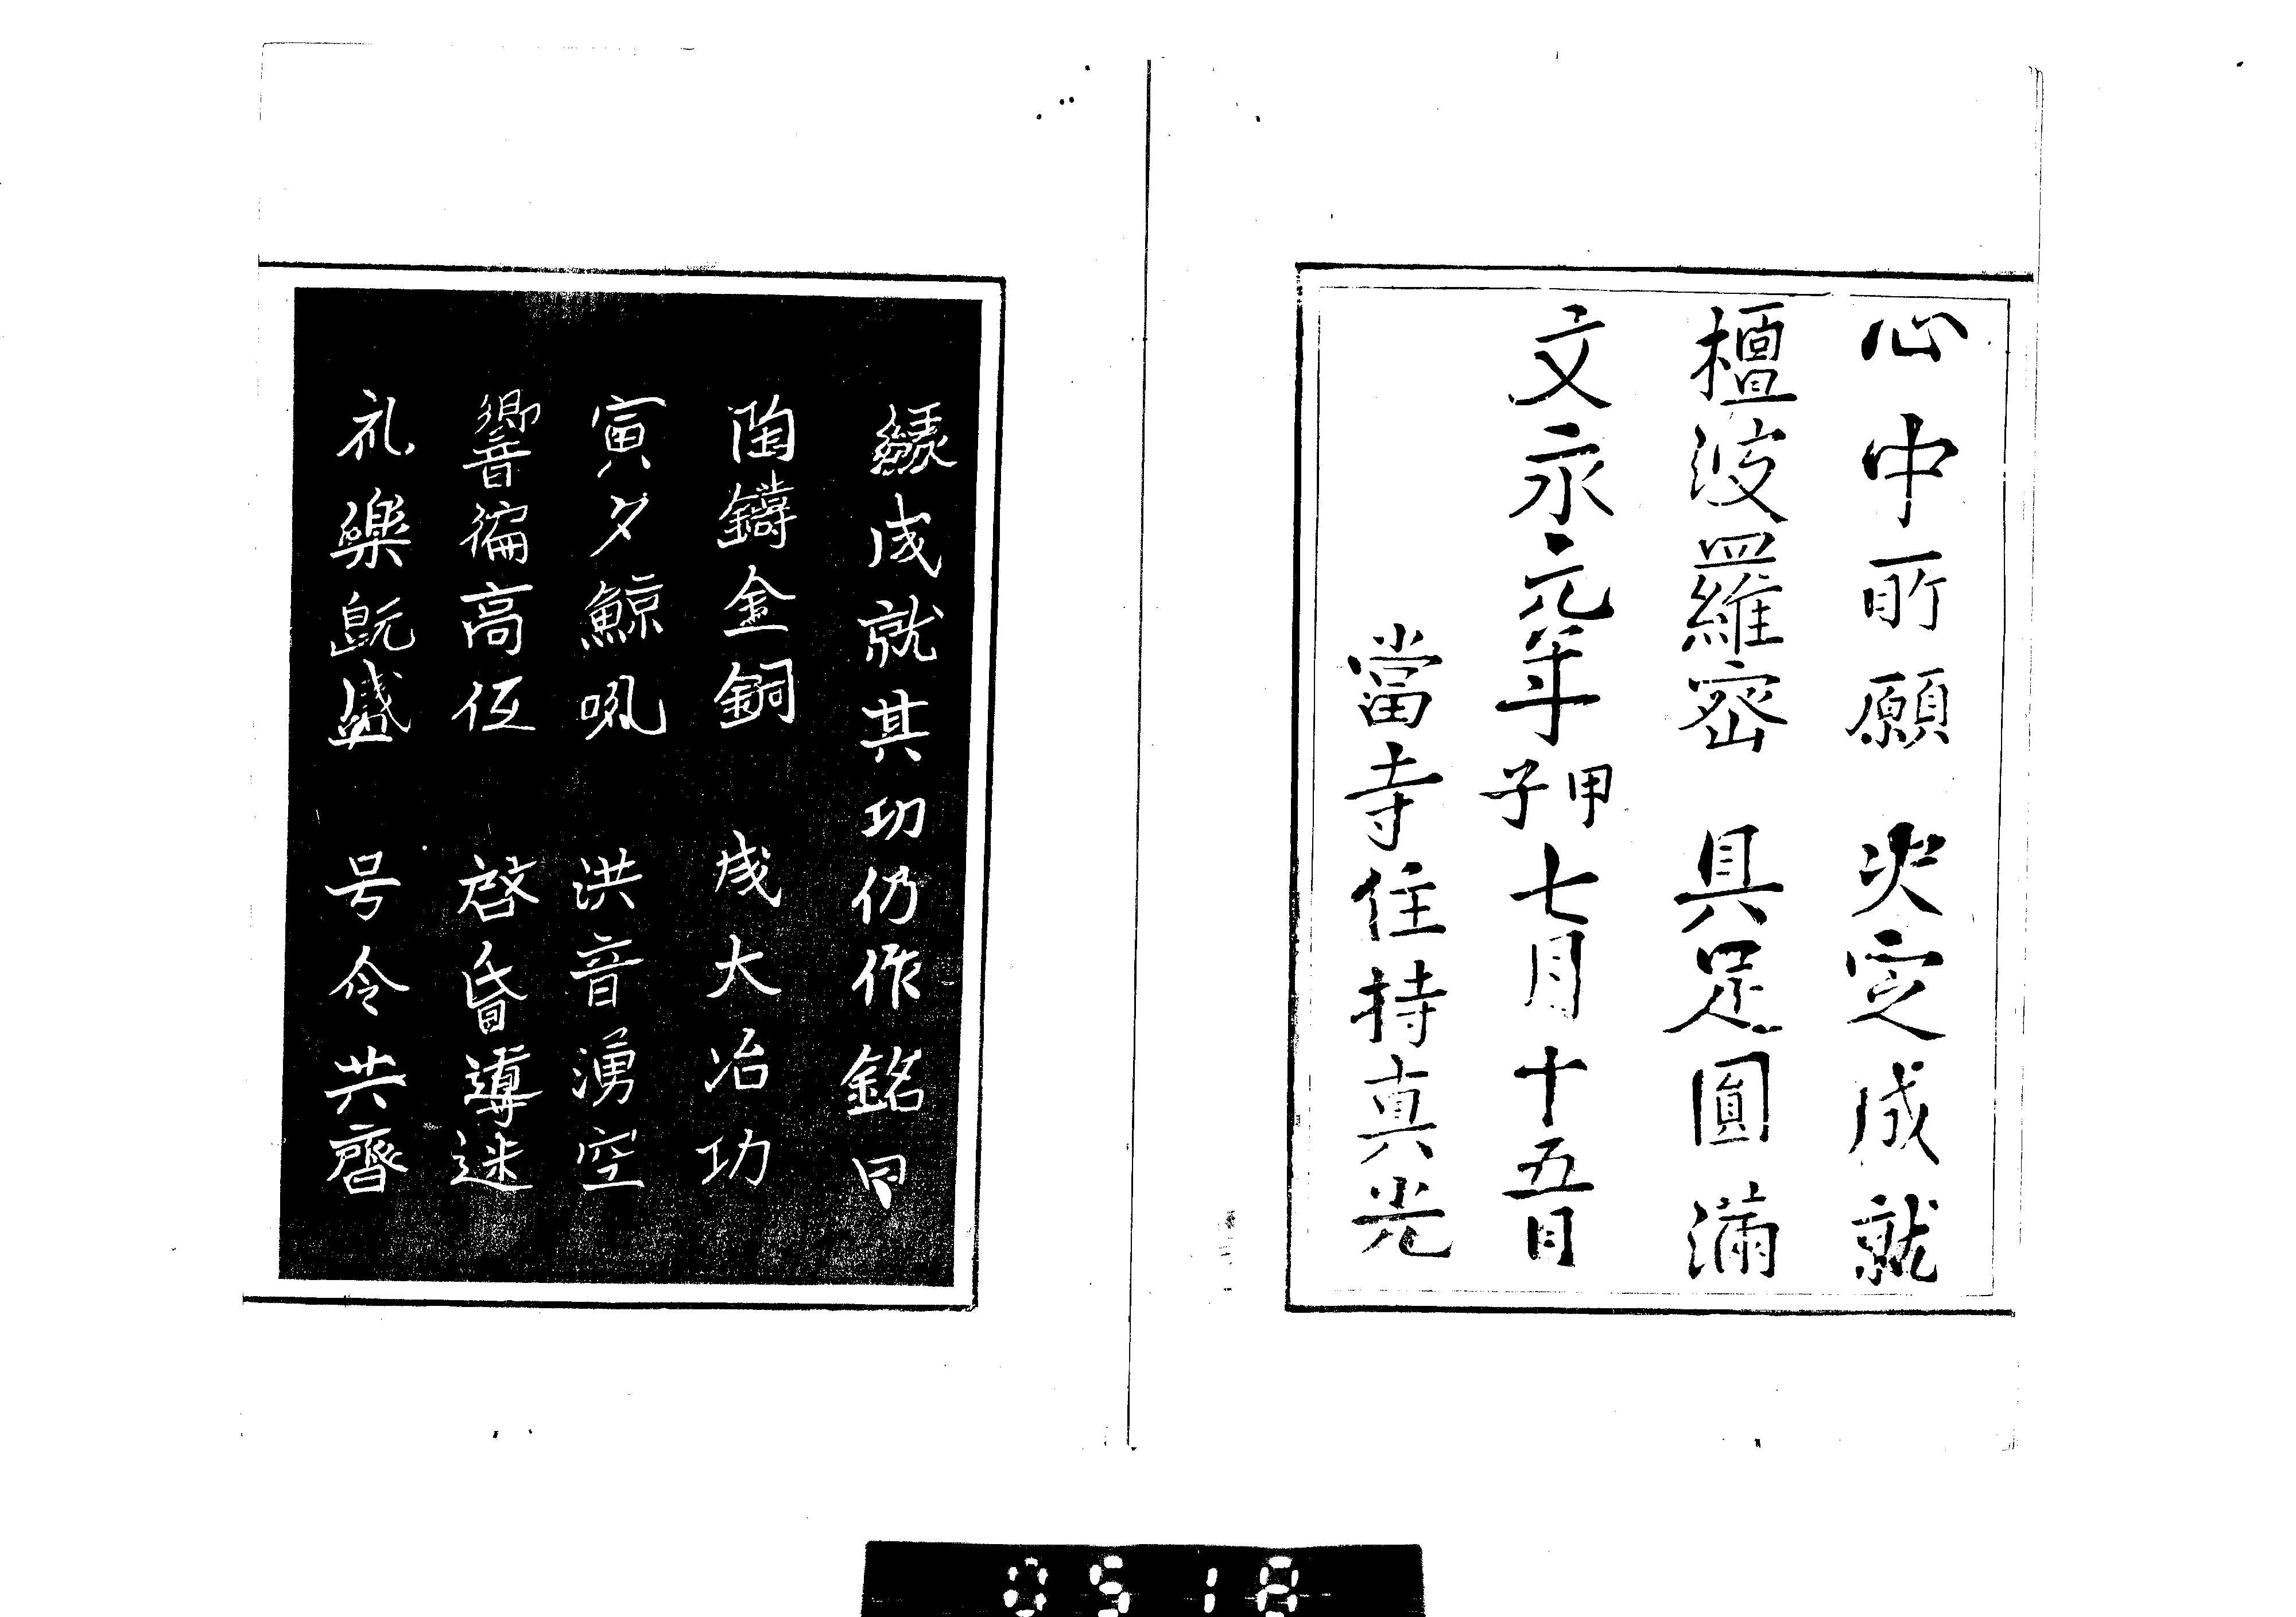 心中所願 决定成就
檀波羅密 具足圓滿
文永元年甲子七月十五日
當寺住持真光
成就其功仍作銘曰
陶鑄金銅 成大冶功
寅夕鯨吼 洪音湧空
響徧高低 啓昏導迷
礼樂既盛 号令共齊
0518